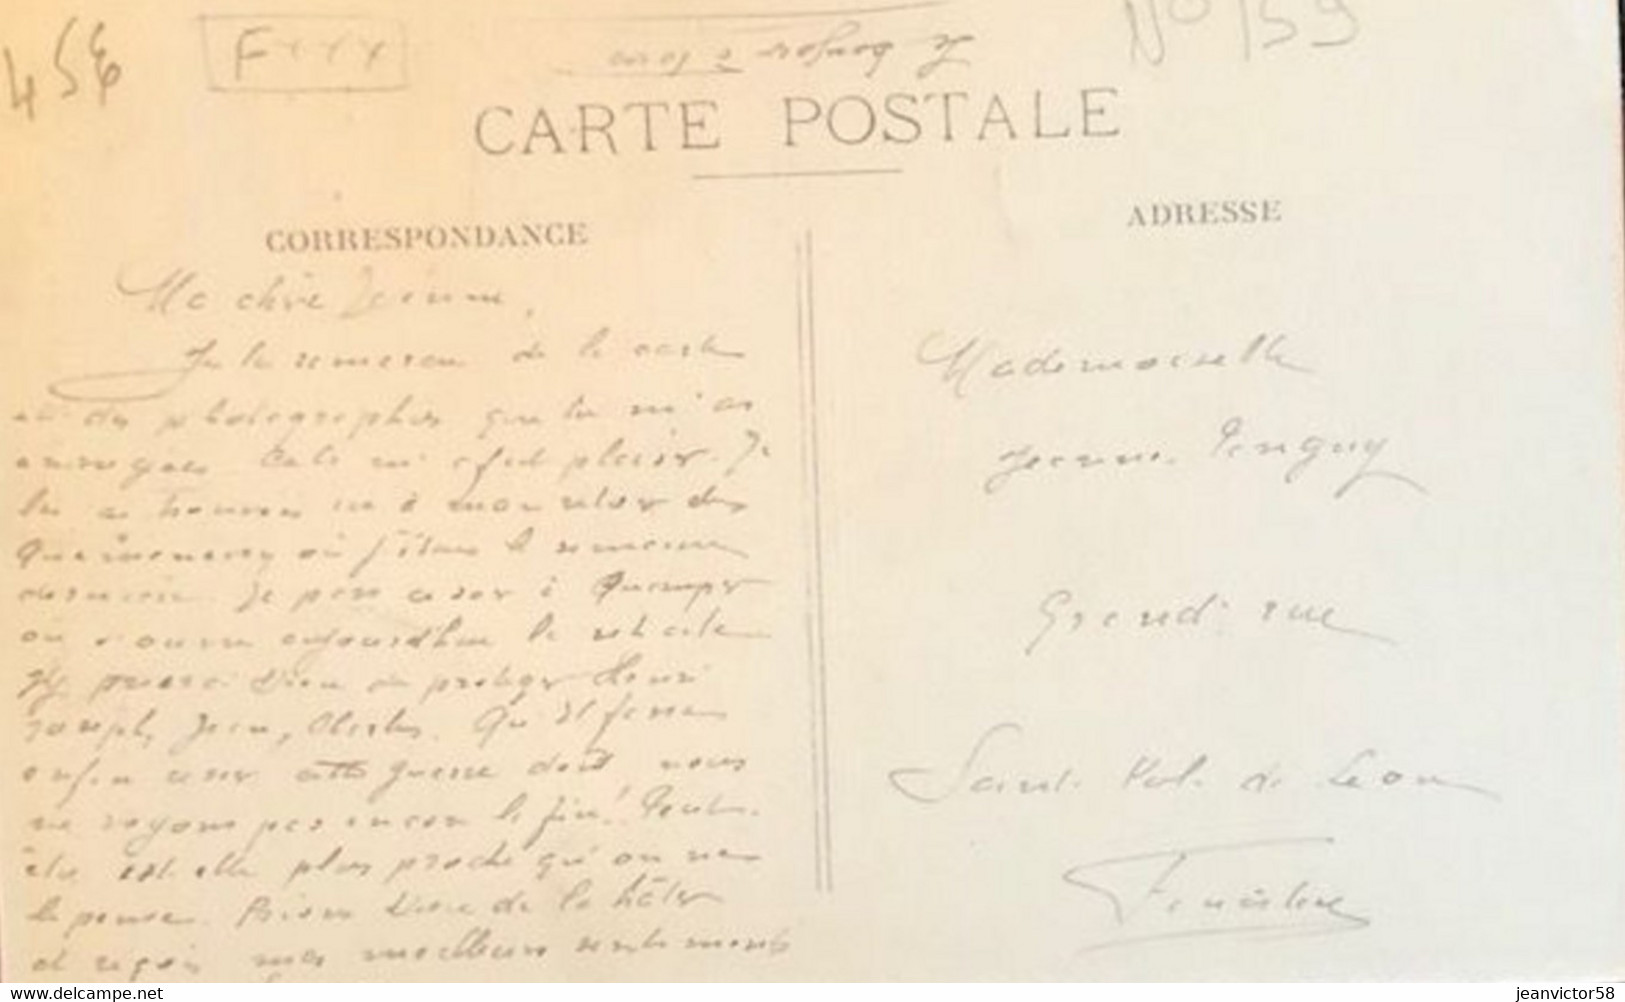 456
F
No 159
CARTE POSTALE
CORRESPONDANCE
ADRESSE
Ma chère Jeanne,
Je te remercie de la carte
et des photographies que tu m'as
envoyées Cela m'a fait plaisir. Je
les ai trouvées à mon retour de
où j'étais la semaine
dernière. Je pars ce soir à Quimper
où s'ouvre aujourd'hui la retraite
J'y prierai Dieu de protéger Henri
Joseph, Jean, Charles. Qu'Il fasse
enfin cesser cette guerre dont nous
ne voyons pas encore la fin! Peut-
être est-elle plus proche qu'on ne
le pense. Prions Dieu de la hâter
et reçois mes meilleurs sentiments
Mademoiselle
Jeanne Tanguy
Grand'rue
Saint-Pol-de-Léon
Finistère
https://www.delcampe.net
jeanvictor58